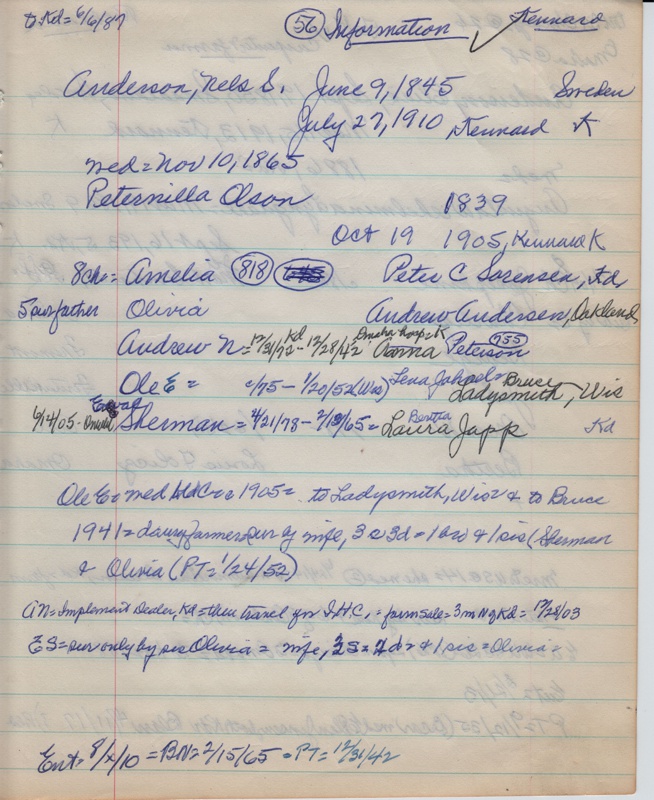 to Kd = 6/6/87 (56) Information ✓ Kennard
Anderson, Nels S. June 9, 1845 Sweden
July 27, 1910 Kennard K
med = Nov 10, 1865
Peternilla Olson 1839
Oct 19 1905, Kennard K
8ch = Amelia (818) Peter C Sorensen, Kd,
5 sur father Olivia Andrew Andersen, Oakland,
Andrew N = 12/31/72 Kd - 12/28/42 Omaha hosp = K Anna Peterson 755
Ole E = c/75 - 1/20/52 (Wis) Lena Jahpel = Bruce
Ladysmith, Wis
6/14/05 - Omaha Sherman = 4/21/78 - 2/13/65 = Bertha
Laura Japp Kd
Ole E = med = 1905 = to Ladysmith, Wis = & to Bruce
1941 = dairy farmer = sur by wife, 3 s 3d = 1 bro & 1 sis (Sherman
& Olivia (PT = 1/24/52)
AN = Implement Dealer, Kd = then travel for I.H.C. = farm sale = 3 m N of Kd = 12/28/03
ES = sur only by sis Olivia = wife, 2s = 2d = & 1 sis = Olivia =
Ent = 8/x/10 = BN = 2/15/65 = PT = 12/31/42